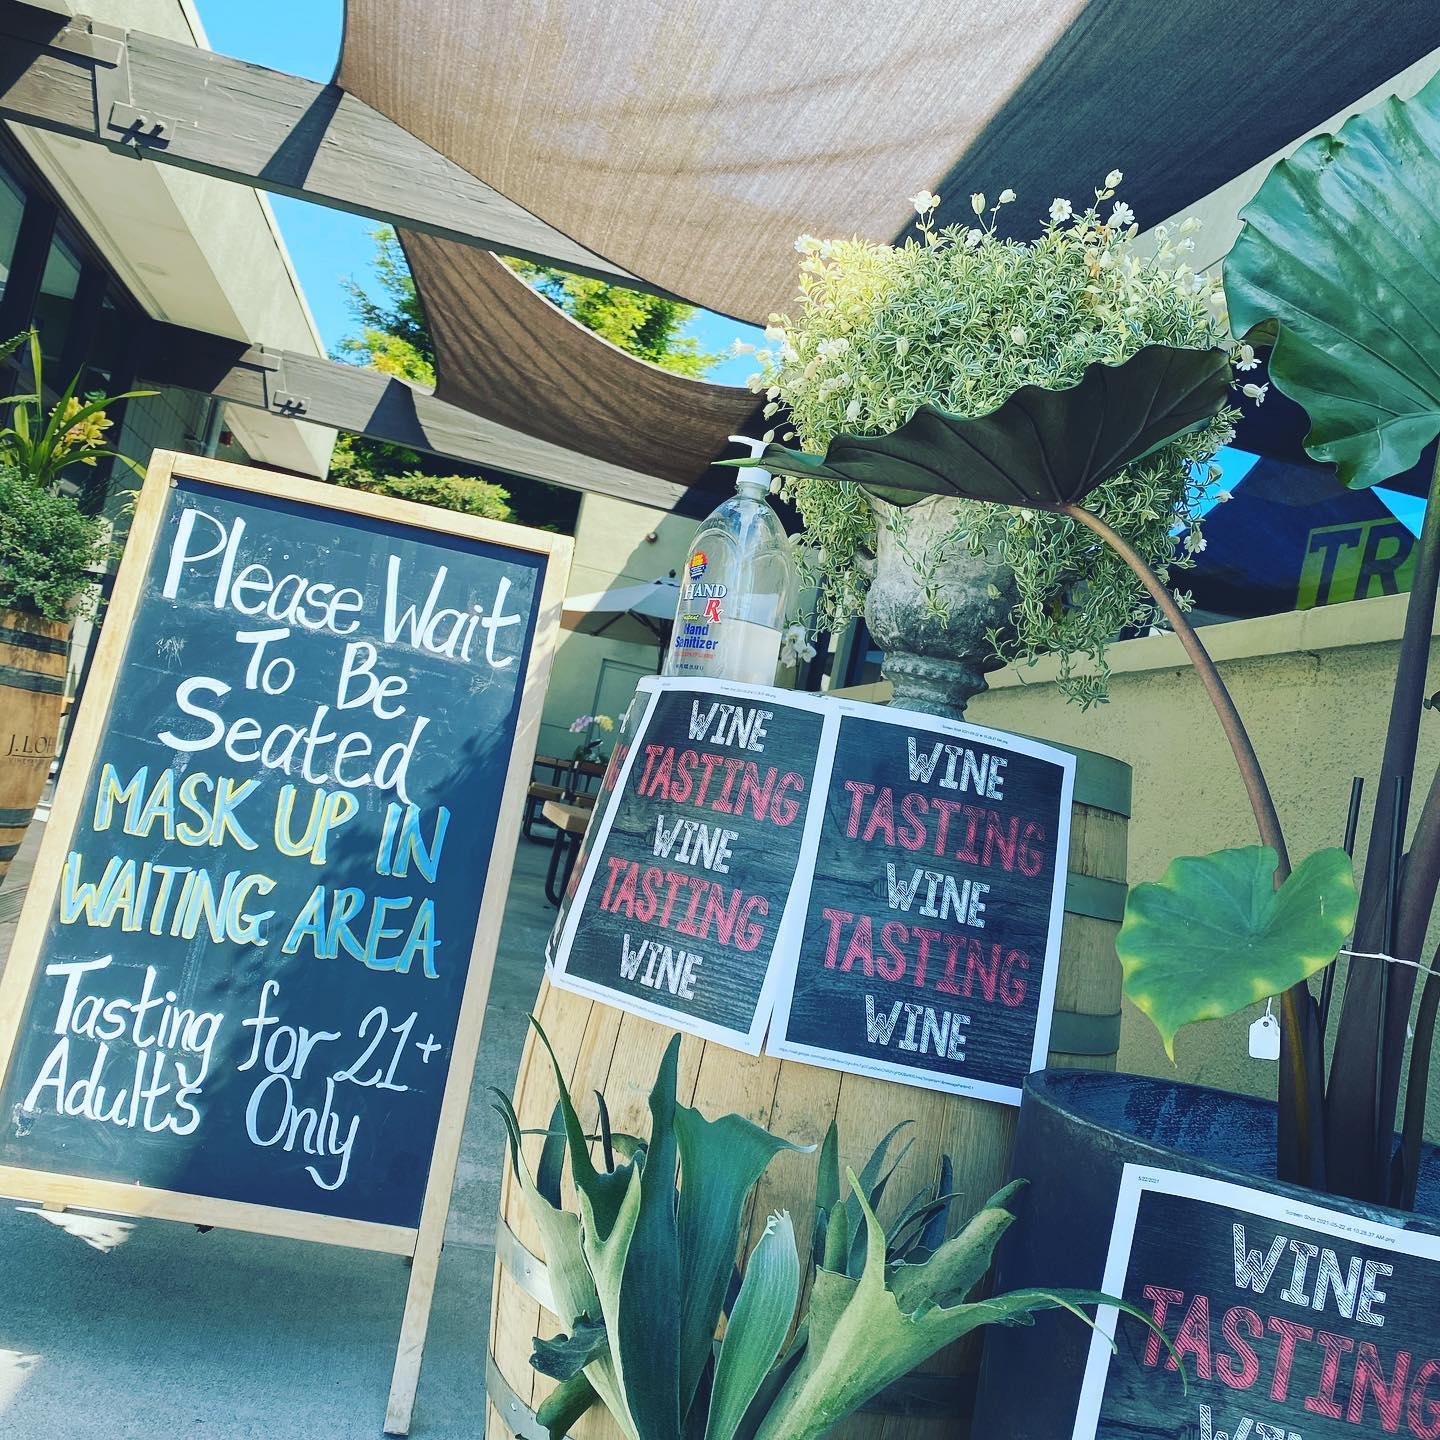 Please Wait
To Be
Seated
MASK UP IN
WAITING AREA
Tasting for 21+
Adults Only
J. LOH
HAND
Rx
Hand
Sanitizer
WINE
TASTING
WINE
TASTING
WINE
Screen Shot 2021-05-22 at 10.28.37 AM.png
WINE
TASTING
WINE
TASTING
WINE
TR
5/22/2021
Screen Shot 2021-05-22 at 10.28.37 AM.png
WINE
TASTING
WINE